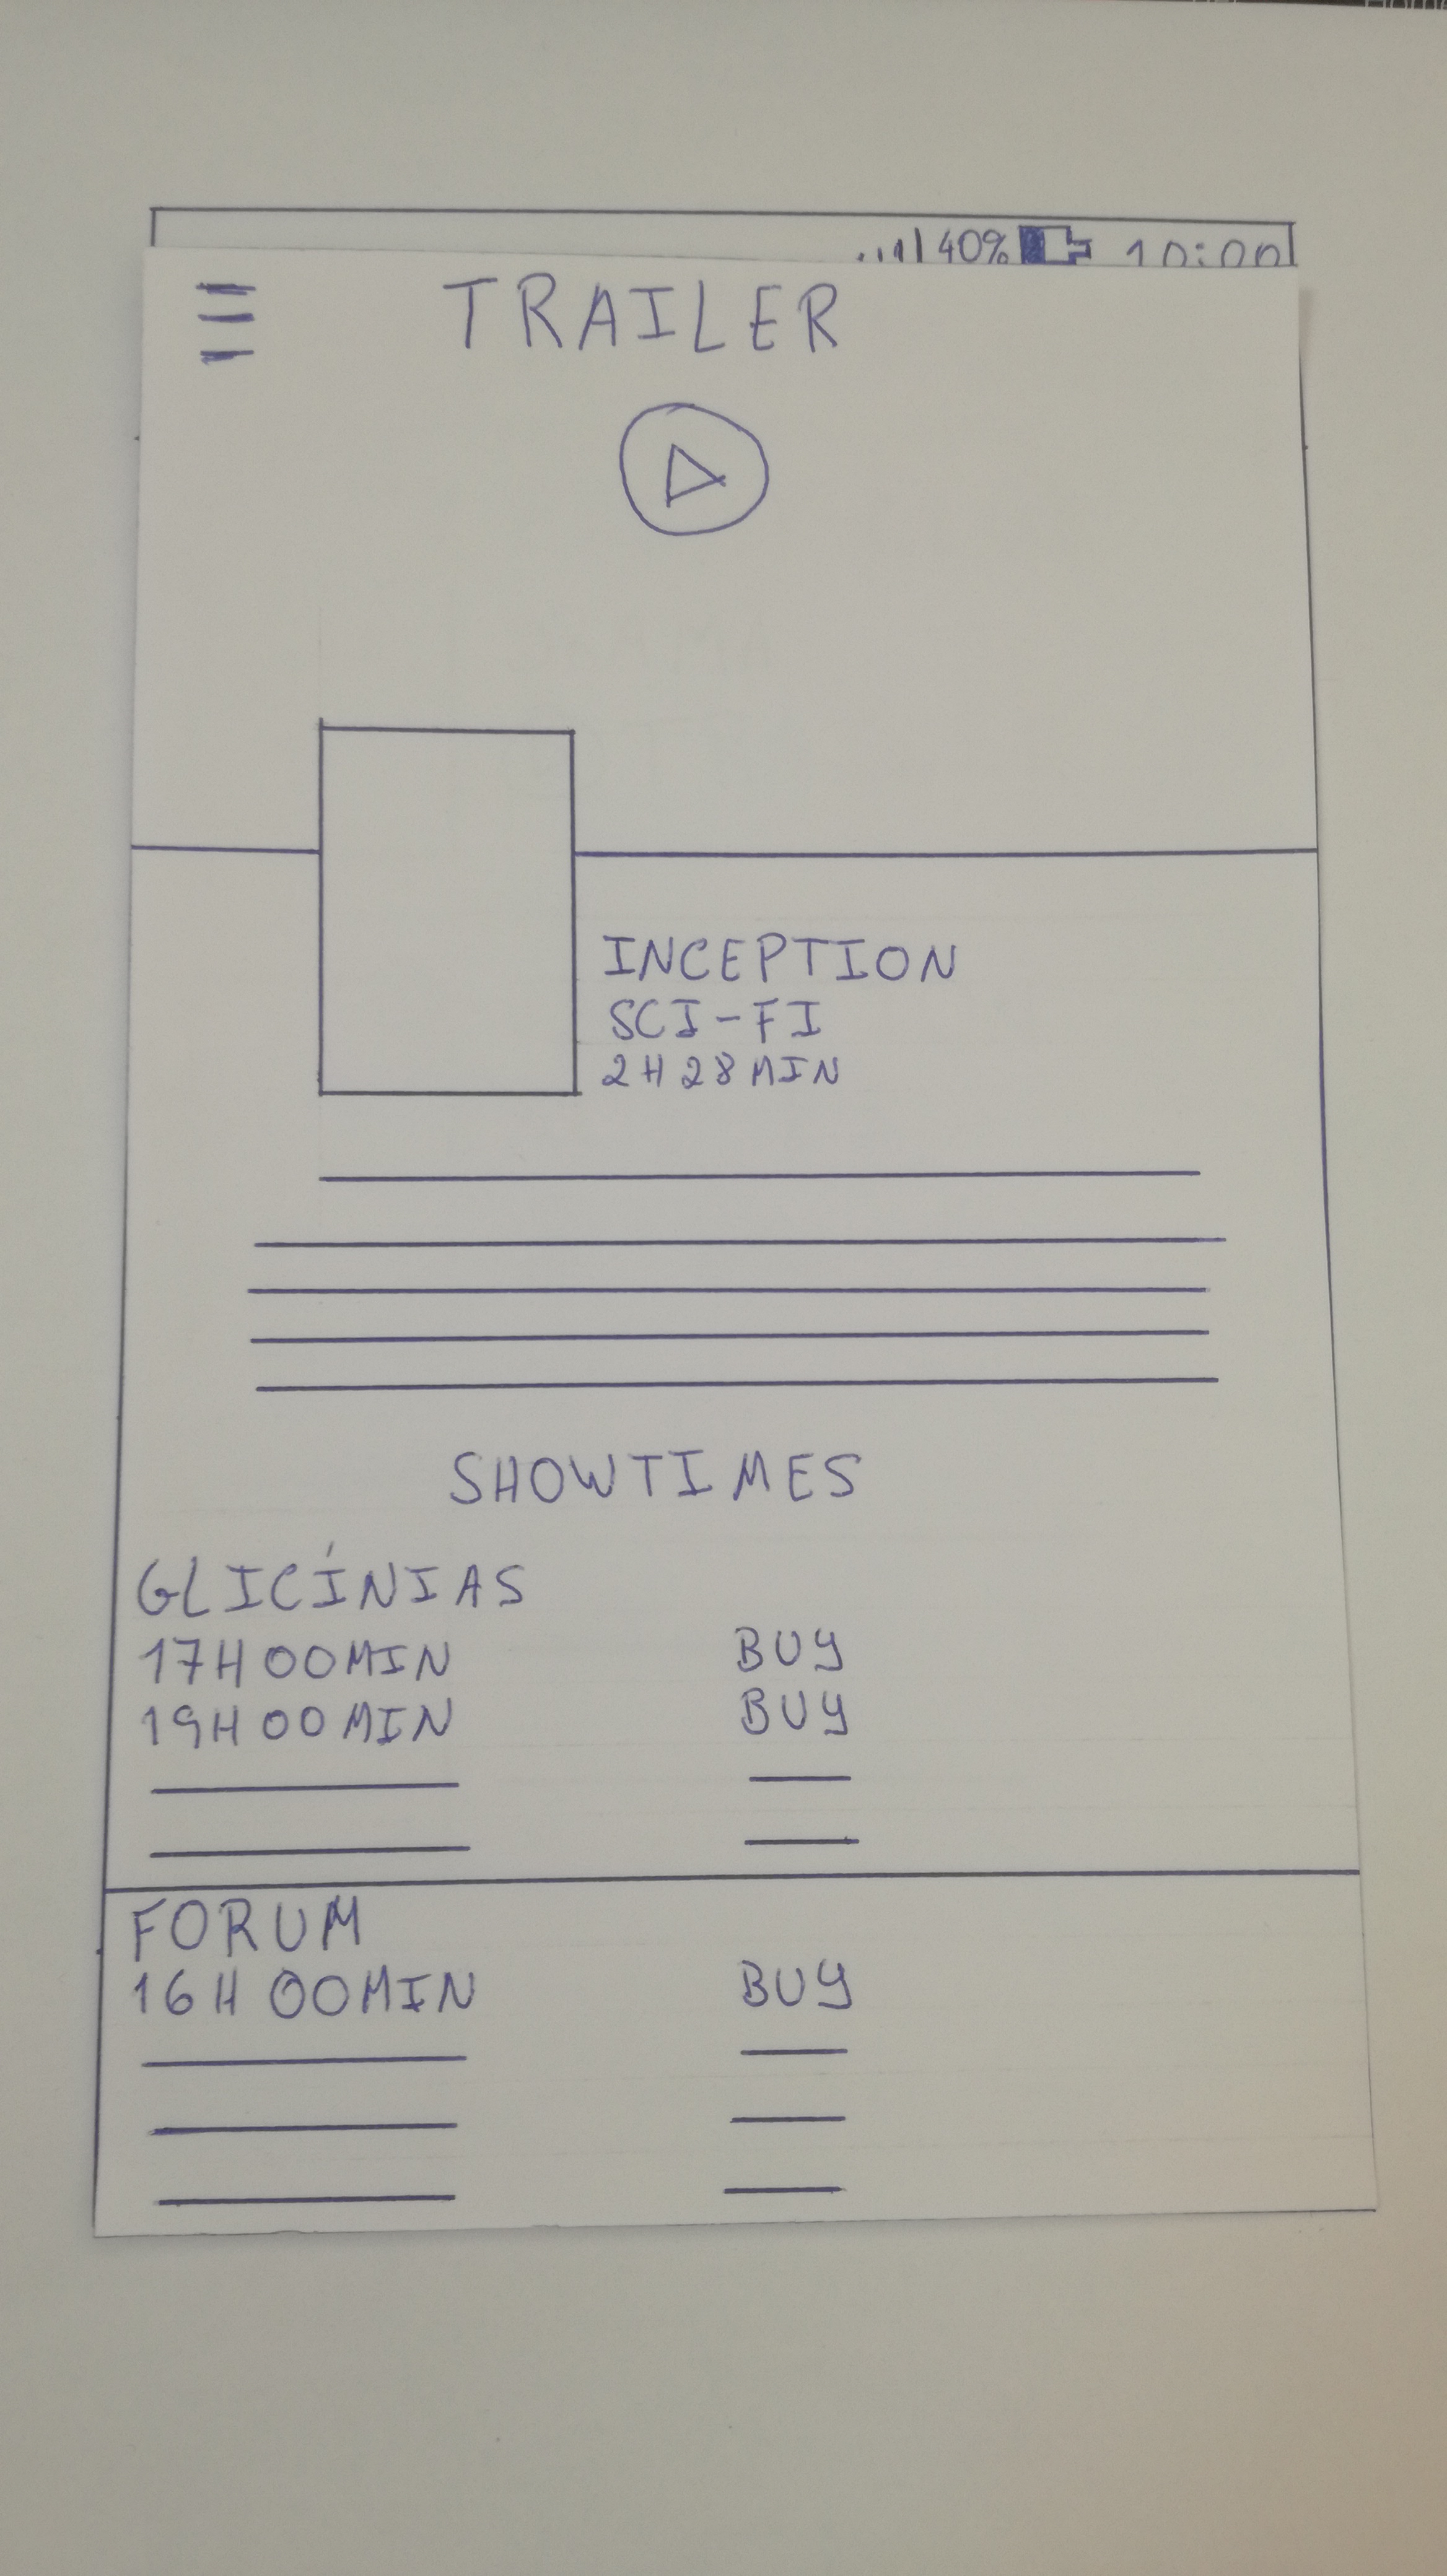 40% 10:00
TRAILER
INCEPTION
SCI-FI
2H 28MIN
SHOWTIMES
GLICÍNIAS
17H 00MIN BUY
19H 00MIN BUY
FORUM
16H 00MIN BUY